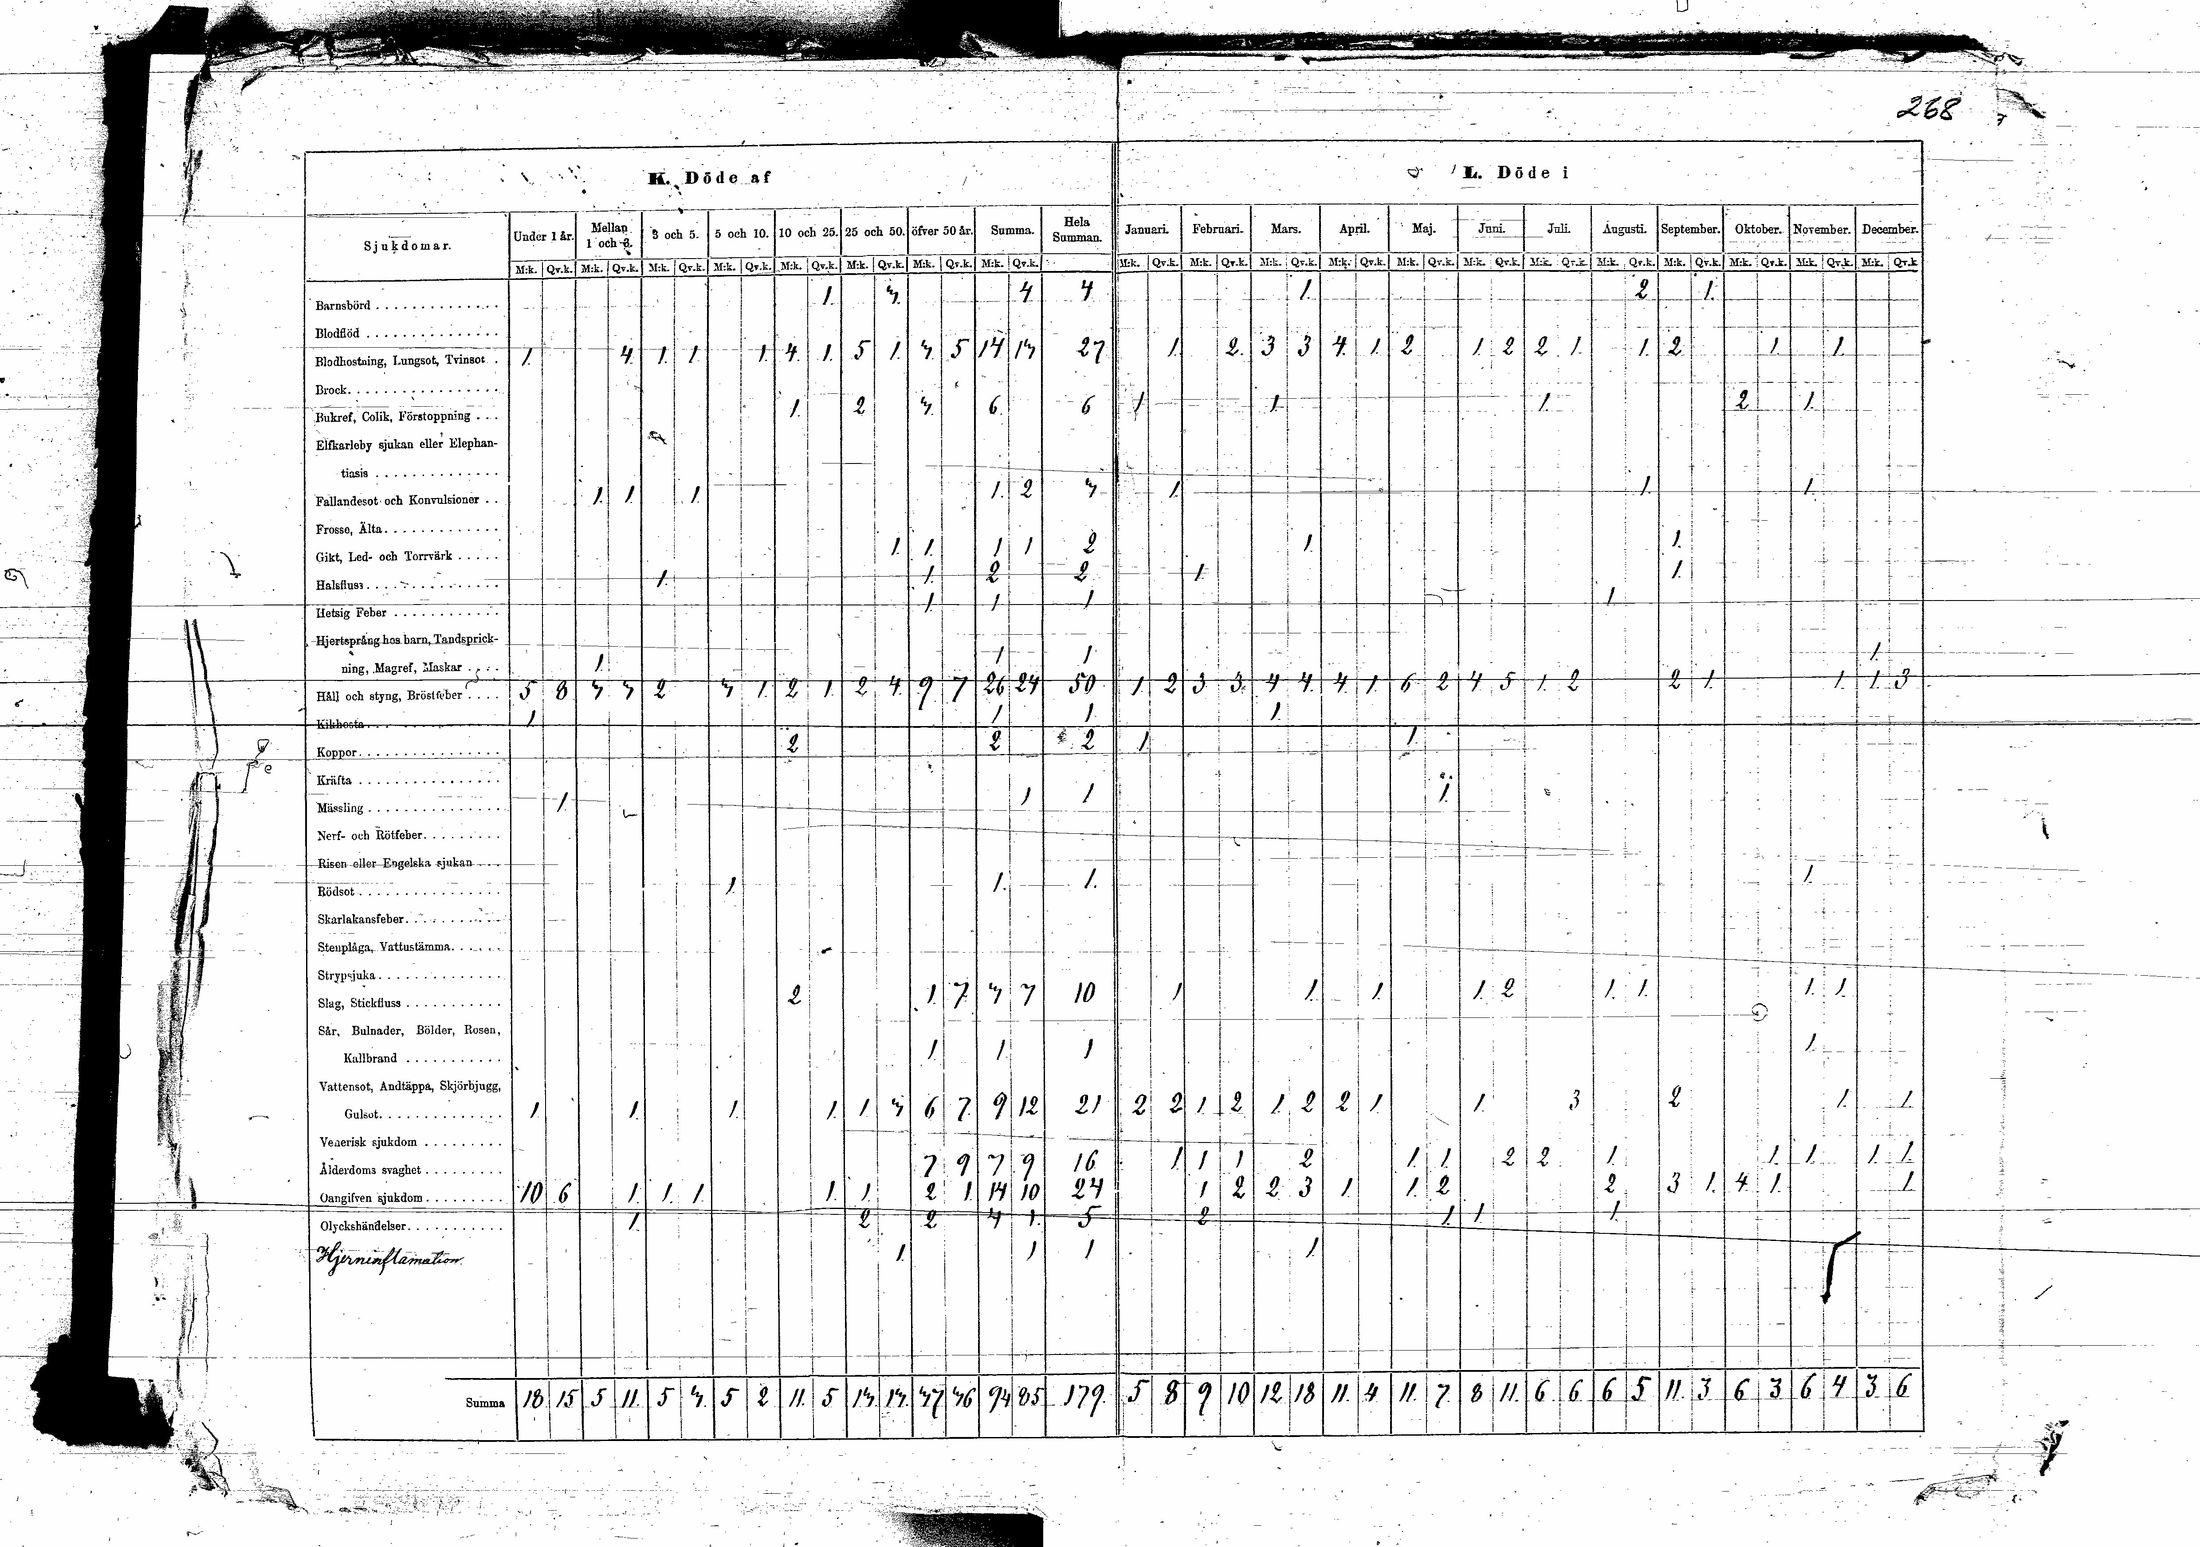 268
K. Döde af
L. Döde i
Sjukdomar. Under 1 år. Mellan 1 och 3. 3 och 5. 5 och 10. 10 och 25. 25 och 50. öfver 50 år. Summa. Hela Summan. Januari. Februari. Mars. April. Maj. Juni. Juli. Augusti. September. Oktober. November. December.
M:k. Qv.k. M:k. Qv.k. M:k. Qv.k. M:k. Qv.k. M:k. Qv.k. M:k. Qv.k. M:k. Qv.k. M:k. Qv.k. M:k. Qv.k. M:k. Qv.k. M:k. Qv.k. M:k. Qv.k. M:k. Qv.k. M:k. Qv.k. M:k. Qv.k. M:k. Qv.k. M:k. Qv.k. M:k. Qv.k. M:k. Qv.k. M:k. Qv.k
Barnsbörd 1. 3. 4 4 1. 2 1.
Blodflöd
Blodhostning, Lungsot, Tvinsot 1. 4. 1. 1. 1. 4. 1. 5 1. 3. 5 14 13 27 1. 2. 3 3 4. 1. 2 1. 2 2 1. 1. 2 1. 1.
Brock
Bukref, Colik, Förstoppning 1. 2 3. 6. 6 1 1. 1. 2 1.
Elfkarleby sjukan eller Elephan-
tiasis
Fallandesot och Konvulsioner 1. 1. 1. 1. 2 3 1. 1. 1.
Frosse, Älta
Gikt, Led- och Torrvärk 1. 1. 1 1 2 1. 1.
Halsfluss 1. 1. 2 2 1 1.
Hetsig Feber 1 1 1 1
Hjertsprång hos barn, Tandsprick-
ning, Magref, Maskar 1. 1 1 1.
Håll och styng, Bröstfeber 5 8 3 3 2 3 1. 2 1. 2 4. 9. 7 26 24 50 1. 2 3 3. 4 4. 4. 1. 6 2 4 5 1. 2 2 1. 1. 1. 3
Kikhosta 1. 1 1 1.
Koppor 2 2 2 1 1.
Kräfta
Mässling 1. 1 1 1.
Nerf- och Rötfeber
Risen eller Engelska sjukan
Rödsot 1. 1. 1. 1.
Skarlakansfeber
Stenplåga, Vattustämma
Strypsjuka
Slag, Stickfluss 2 1. 7. 3 7 10 1 1. 1. 1. 2 1. 1. 1. 1.
Sår, Bulnader, Bölder, Rosen,
Kallbrand 1. 1. 1 1.
Vattensot, Andtäppa, Skjörbjugg,
Gulsot 1. 1. 1. 1. 1. 3 6 7. 9 12 21 2 2 1. 2 1. 2 2 1. 1. 3 2 1. 1.
Venerisk sjukdom
Ålderdoms svaghet 7 9 7 9 16 1 1 1 2 1. 1. 2 2 1. 1. 1. 1. 1.
Oangifven sjukdom 10 6 1. 1. 1. 1. 1. 2 1. 14 10 24 1 2 2 3 1. 1. 2 2 3 1. 4 1. 1.
Olyckshändelser 1. 2 2 4 1. 5 2 1. 1 1.
Hjerninflamation. 1. 1 1 1.
Summa 18 15 5 11. 5 3. 5 2 11. 5 13 13. 37 36 94 85 179. 5 8 9 10 12 18 11. 4 11. 7. 8 11. 6 6 6 5 11. 3 6 3 6 4 3 6